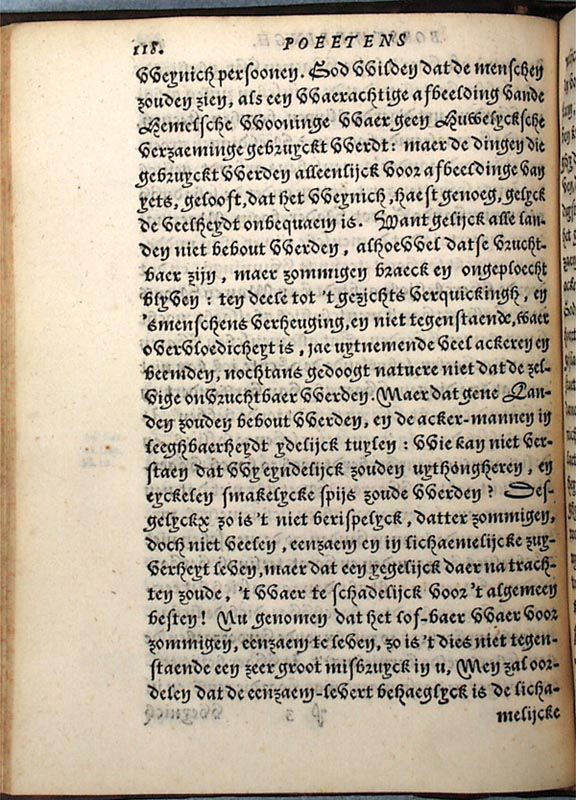 118. POEETENS
VVeynich persoonen. God VVilden dat de menschen
zouden zien, als een VVaerachtige afbeelding vande
Hemelsche VVooninge VVaer geen Huvvelycksche
verzaeminge gebruyckt VVerdt: maer de dingen die
gebruyckt VVerden alleenlijck voor afbeeldinge van
yets, gelooft, dat het VVeynich, haest genoeg, gelyck
de veelheydt onbequaem is. Want gelijck alle lan-
den niet bebout VVerden, alhoevvel datse vrucht-
baer zijn, maer zommigen braeck en ongeploecht
blyven: ten deele tot 't gezichts verquickingh, en
'smenschens verheuging, en niet tegenstaende, waer
overvloedicheyt is, jae uytnemende veel ackeren en
beemden, nochtans gedoogt natuere niet dat de zel-
vige onvruchtbaer VVerden. Maer dat gene Lan-
den zouden bebout VVerden, en de acker-mannen in
leeghbaerheydt ydelijck tuylen: VVie kan niet ver-
staen dat VVy eyndelijck zouden uythongheren, en
eyckelen smakelycke spijs zoude VVerden? Des-
gelyckx zo is 't niet berispelyck, datter zommigen,
doch niet veelen, eenzaem en in lichaemelijcke zuy-
verheyt leven, maer dat een yegelijck daer na trach-
ten zoude, 't VVaer te schadelijck voor 't algemeen
besten! Nu genomen dat het lof-baer VVaer voor
zommigen, eenzaem te leven, zo is 't dies niet tegen-
staende een zeer groot misbruyck in u, Men zal oor-
delen dat de eenzaem-levert behaeglyck is de licha-
melijcke